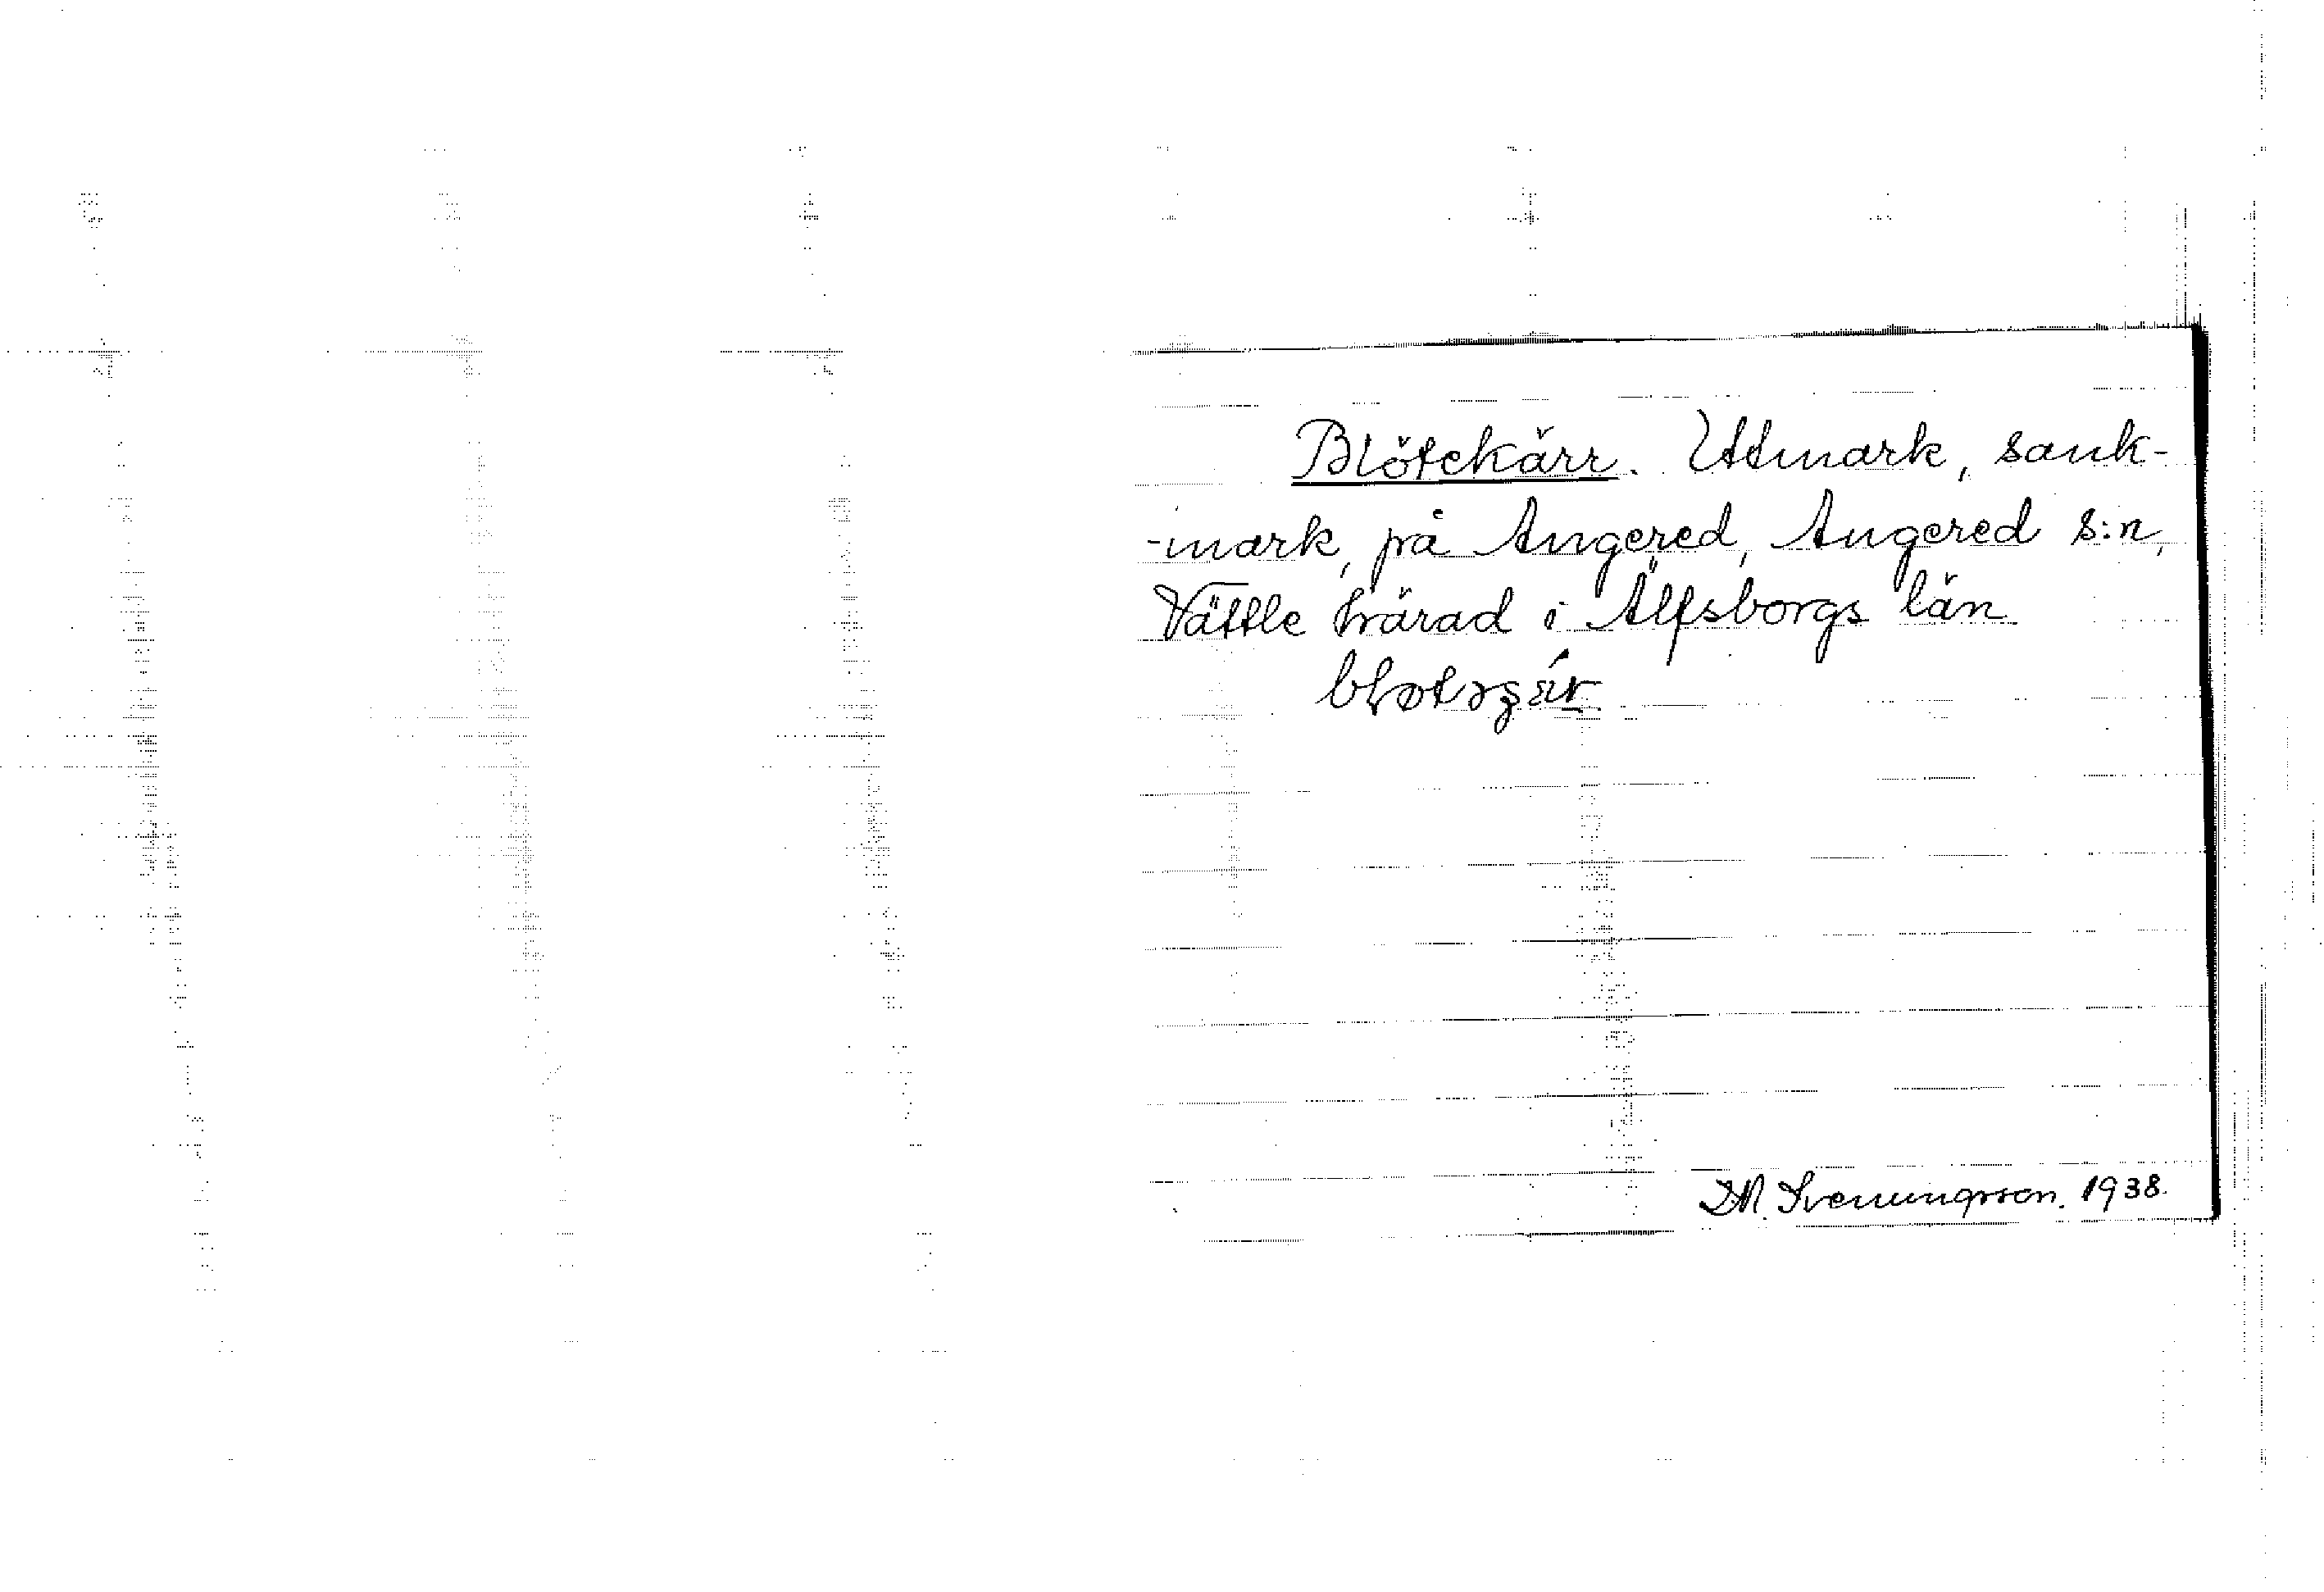 Blötekärr. Utmark, sank-
-mark, på Angered, Angered s:n,
Vättle härad i Älfsborgs län.
D.N. Svenungsson. 1938.